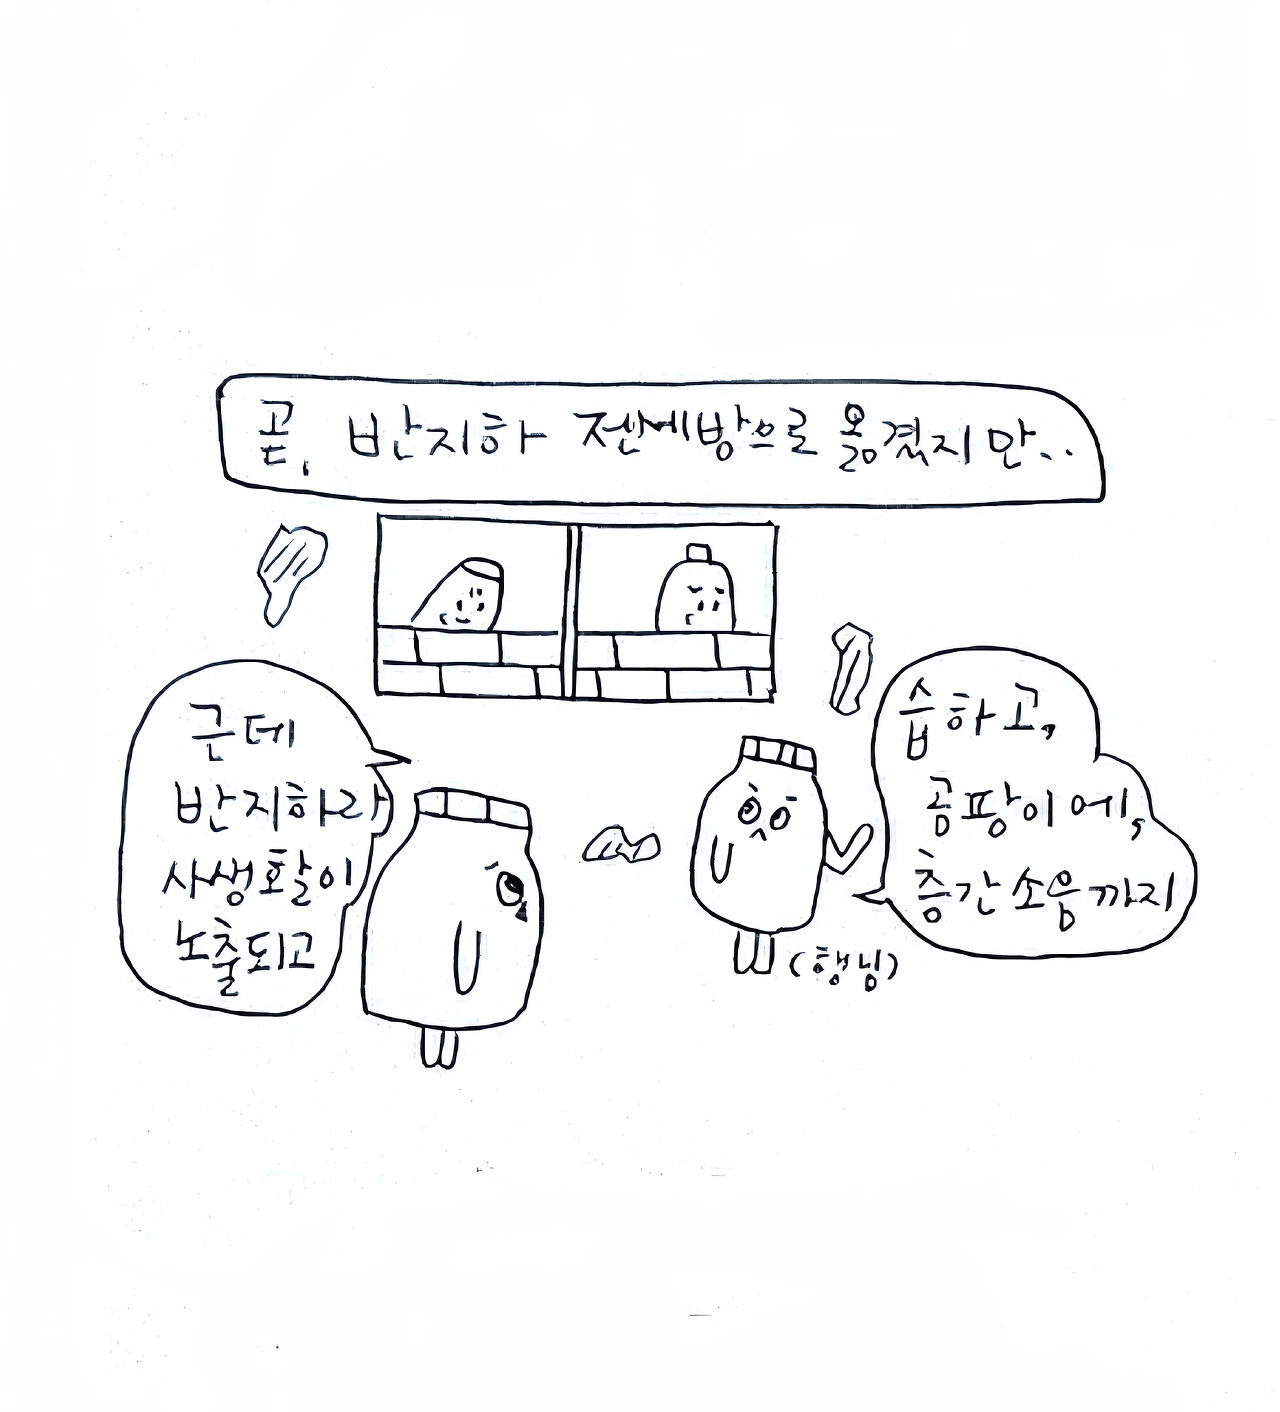 곧, 반지하 전세방으로 옮겼지만..
근데
반지하라
사생활이
노출되고
습하고,
곰팡이에,
층간소음까지
(행님)